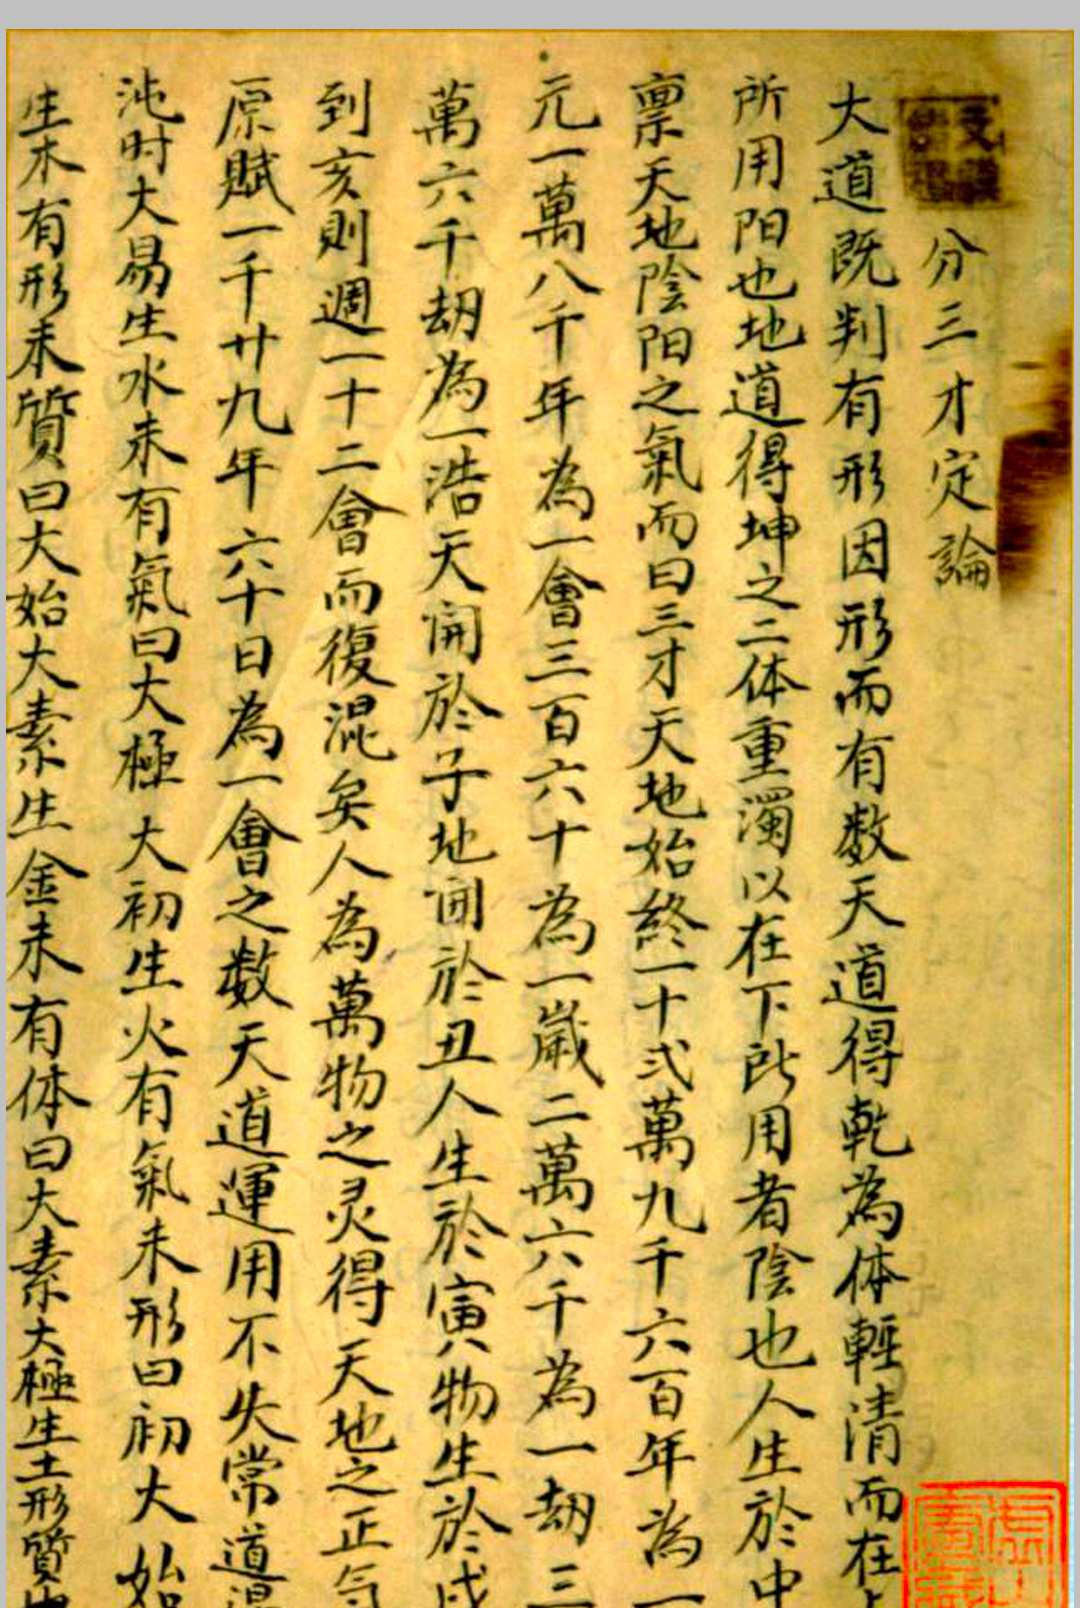 分三才定論
大道既判有形因形而有数天道得乾為体輕清而在
所用阳也地道得坤之二体重濁以在下所用者陰也人生於中
禀天地陰阳之氣而曰三才天地始終一十弍萬九千六百年為一
元一萬八千年為一會三百六十為一歲二萬六千為一劫三
萬六千劫為一浩天開於子地開於丑人生於寅物生於戌
到亥則週一十二會而復混矣人為萬物之灵得天地之正气
原賦一千廿九年六十日為一會之数天道運用不失常道混
沌时大易生水未有氣曰大極大初生火有氣未形曰初大始
生木有形未質曰大始大素生金未有体曰大素大極生土形質